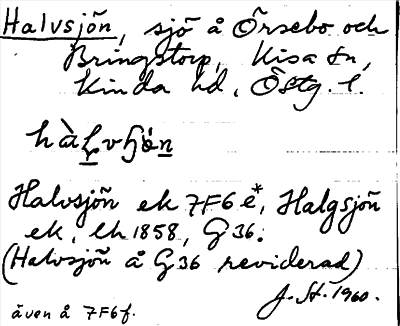 Halvsjön, sjö å Örsebo och
Bringstorp, Kisa sn,
Kinda hd, Östg. l.
Halvsjön ek 7F6e*, Halgsjön
ek, lk 1858, G36.
(Halvsjön å G36 reviderad)
J. St. 1960.
även å 7F6f.